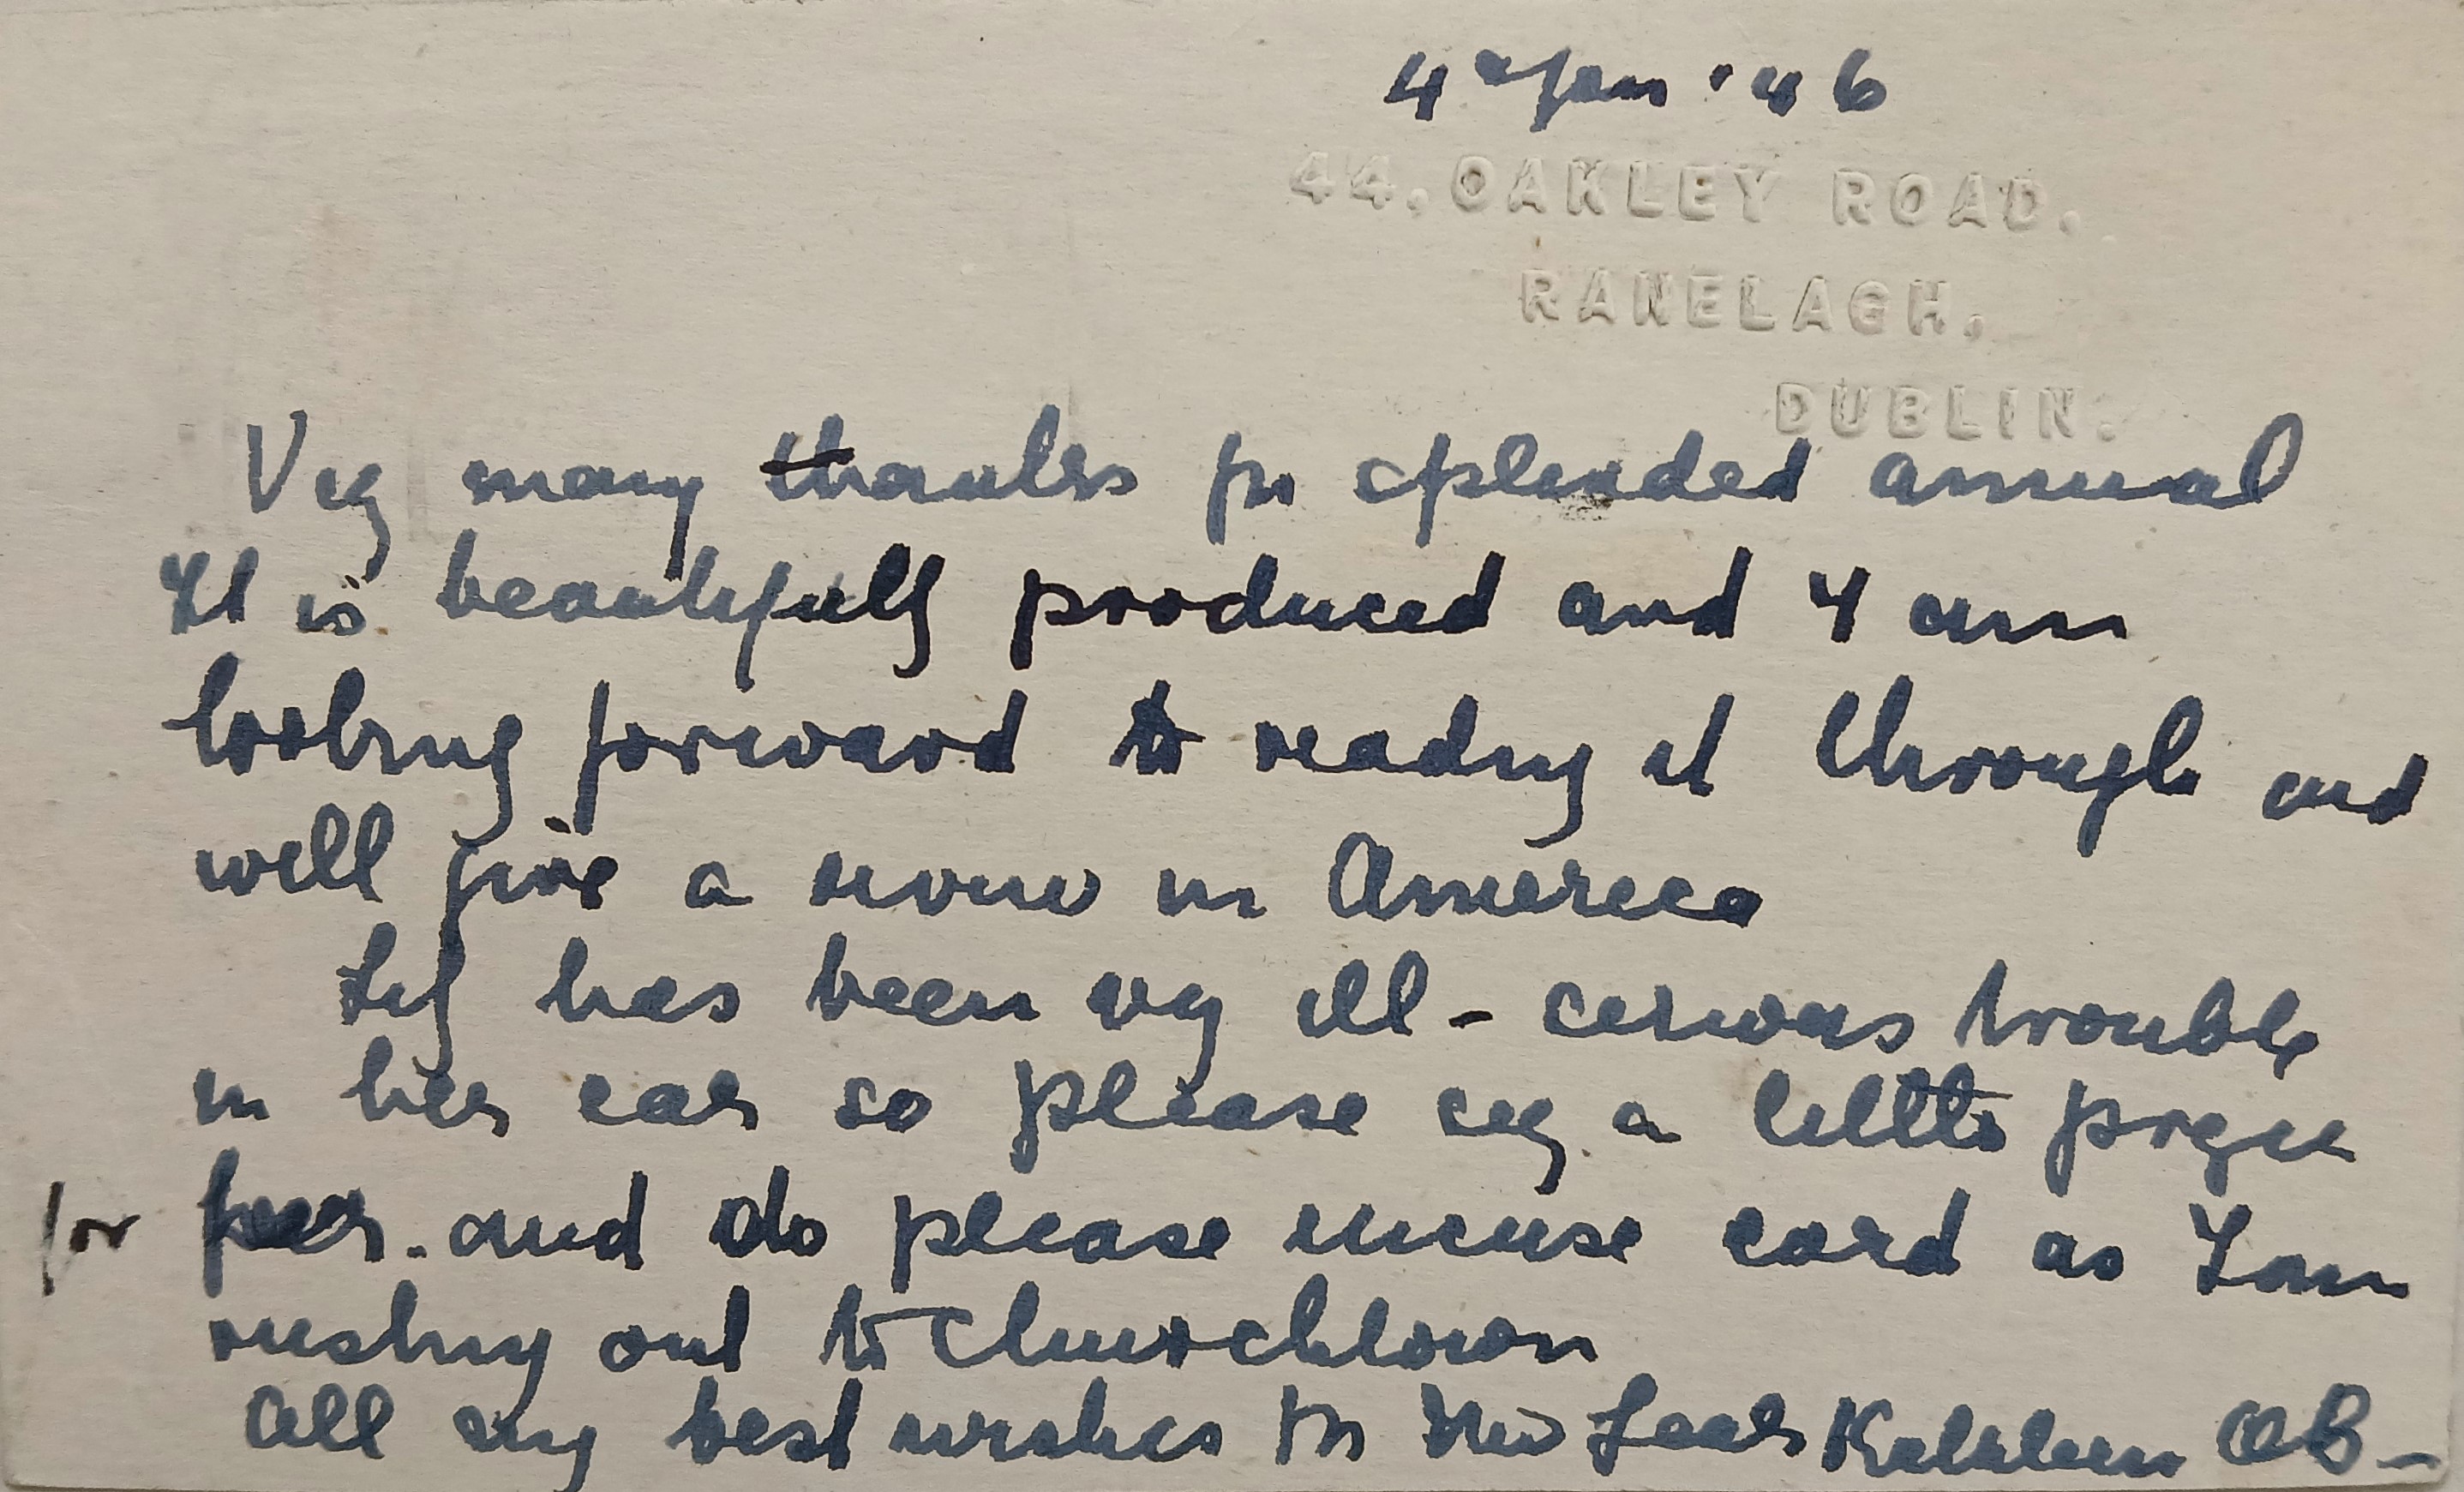 4th Jan '46
44. OAKLEY ROAD.
RANELAGH.
DUBLIN.
Very many thanks for splended annual
It is beautifully produced and I am
looking forward to reading it through and
will give a review in America
has been very ill - serious trouble
in her ear so please say a little prayer
for her. and do please excuse card as I am
rushing out to Churchtown
All my best wishes for New Year Kathleen OB-